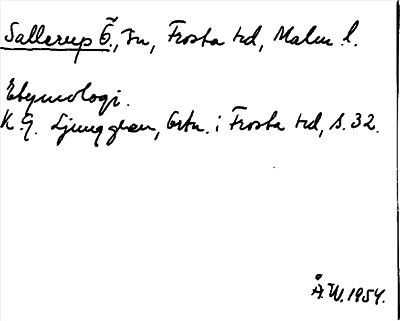 Sallerup Ö., sn, Frosta hd, Malm. l.
Etymologi.
K. G. Ljunggren, Ortn. i Frosta hd, s. 32.
Å.W. 1954.